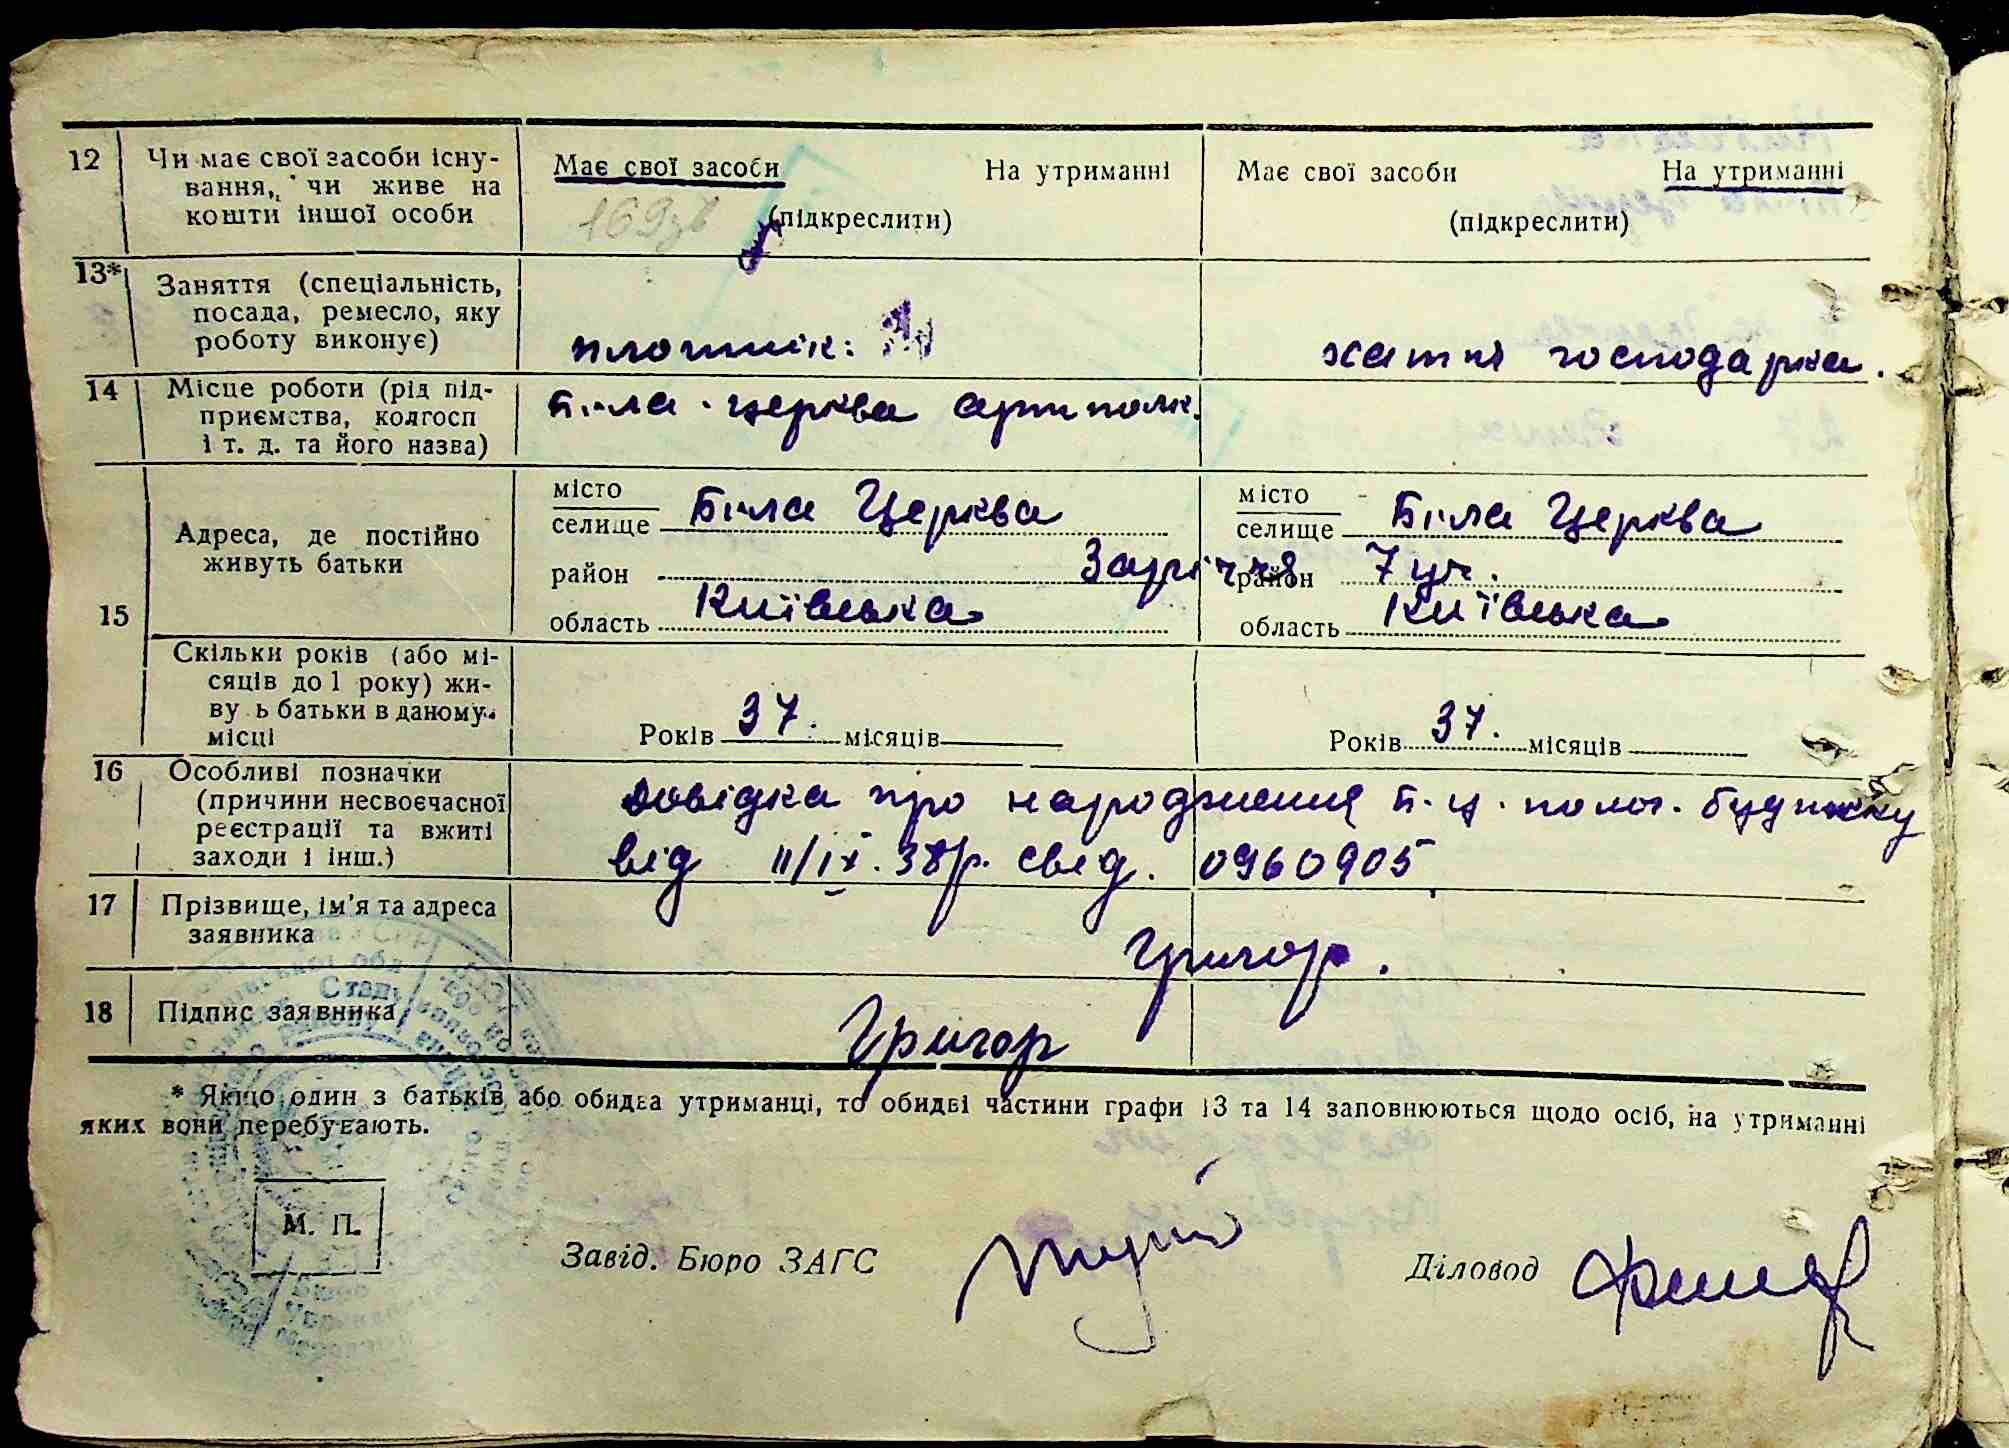 12 Чи має свої засоби існу-
вання, чи живе на
кошти іншої особи
Має свої засоби На утриманні
(підкреслити)
Має свої засоби На утриманні
(підкреслити)
13* Заняття (спеціальність,
посада, ремесло, яку
роботу виконує)
плотнік:
хатня господарка.
14 Місце роботи (рід під-
приємства, колгосп
і т. д. та його назва)
Біла-Церква артполк.
15 Адреса, де постійно
живуть батьки
місто
селище Біла Церква
район Заріччя
область Київська
місто
селище Біла Церква
район 7 уч.
область Київська
Скільки років (або мі-
сяців до 1 року) жи-
ву ь батьки в даному
місці
Років 37. місяців
Років 37. місяців
16 Особливі позначки
(причини несвоєчасної
реєстрації та вжиті
заходи і інш.)
Довідка про народження Б.Ц. полог. будинку
від 11/IX.38р. свід. 0960905
17 Прізвище, ім'я та адреса
заявника
Григор.
18 Підпис заявника
Григор
* Якщо один з батьків або обидва утриманці, то обидві частини графи 13 та 14 заповнюються щодо осіб, на утриманні
яких вони перебувають.
М. П.
Завід. Бюро ЗАГС
Діловод